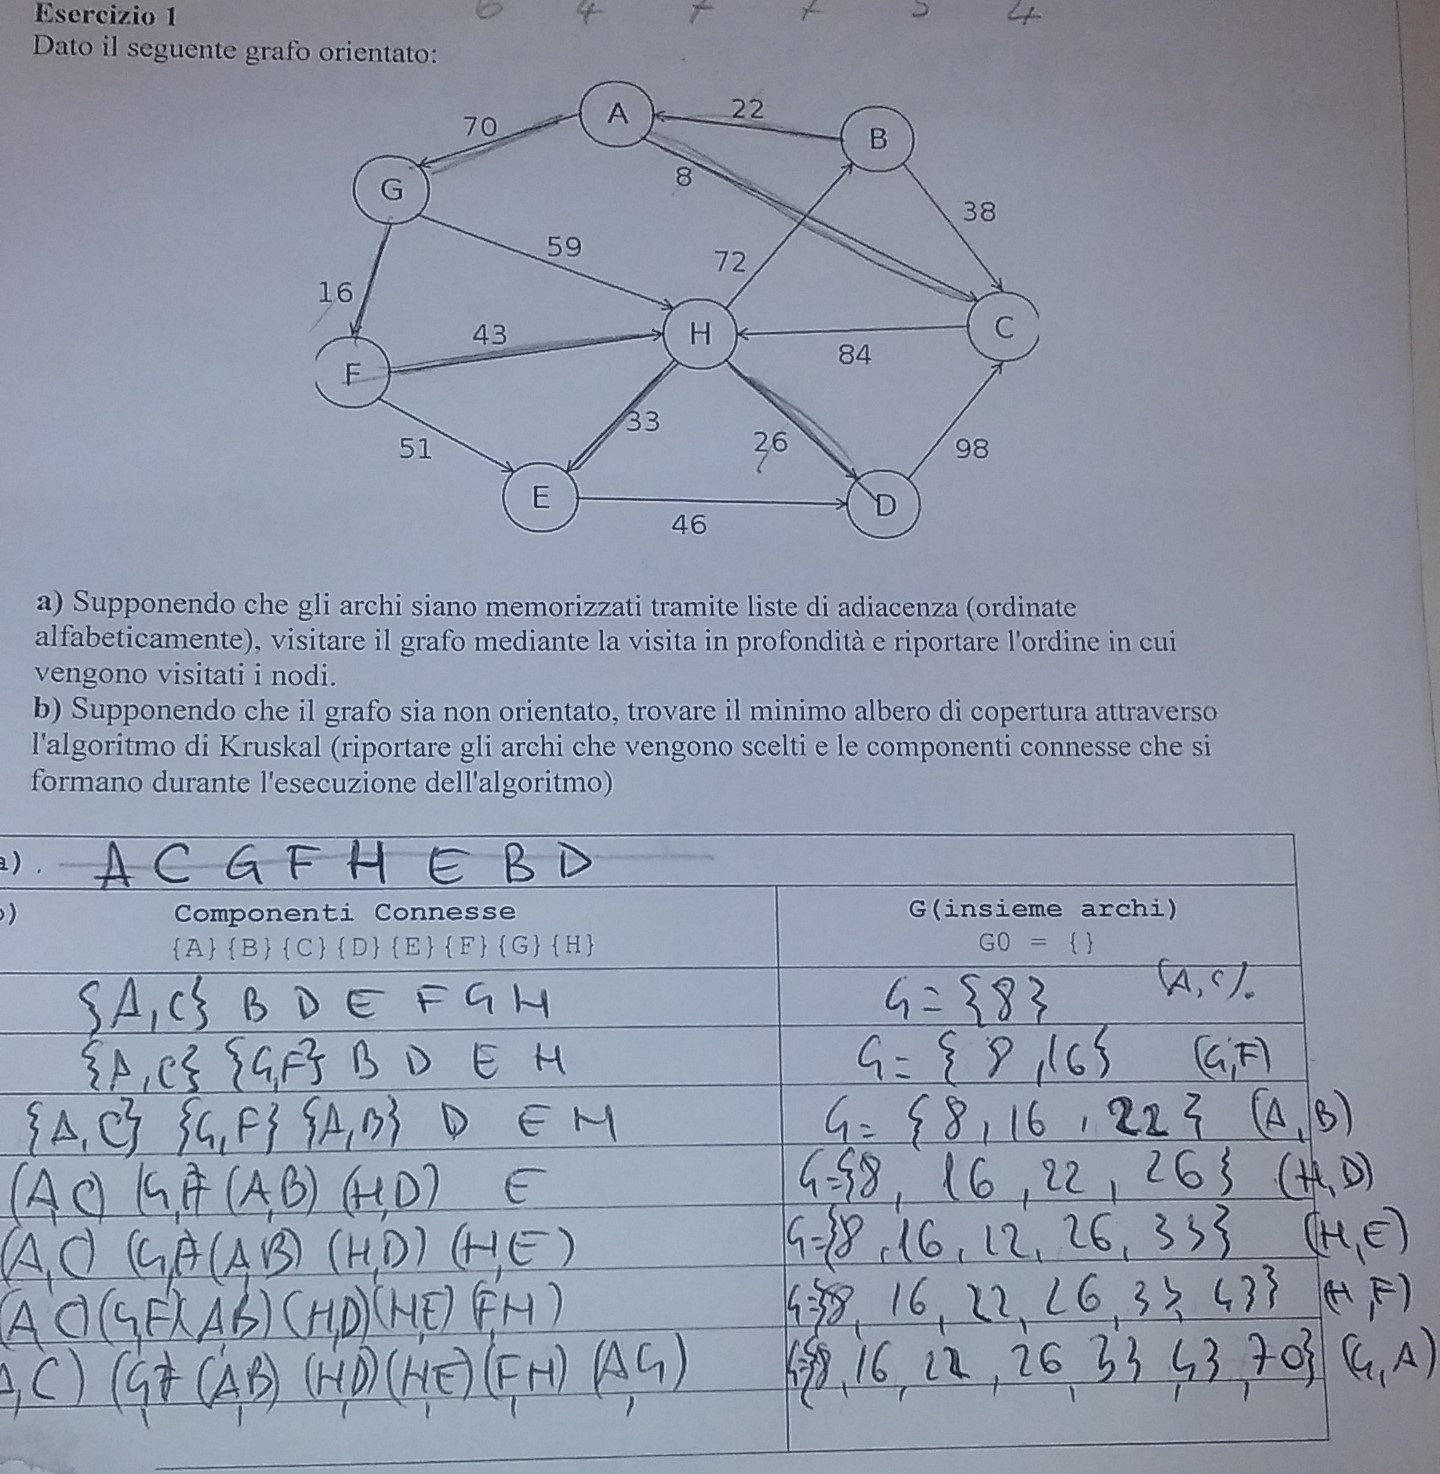 Esercizio 1
6 4 7 7 5 4
Dato il seguente grafo orientato:
A
22
70
B
8
G
38
59
72
16
43
H
C
84
F
33
26
51
98
E
D
46
a) Supponendo che gli archi siano memorizzati tramite liste di adiacenza (ordinate
alfabeticamente), visitare il grafo mediante la visita in profondità e riportare l'ordine in cui
vengono visitati i nodi.
b) Supponendo che il grafo sia non orientato, trovare il minimo albero di copertura attraverso
l'algoritmo di Kruskal (riportare gli archi che vengono scelti e le componenti connesse che si
formano durante l'esecuzione dell'algoritmo)
a). A C G F H E B D
b) Componenti Connesse G(insieme archi)
{A}{B}{C}{D}{E}{F}{G}{H} G0 = {}
{A,C} B D E F G H G={8} (A,C).
{A,C} {G,F} B D E H G={8,16} (G,F)
{A,C} {G,F} {A,B} D E H G={8,16,22} (A,B)
(A,C) (G,F (A,B) (H,D) E G={8,16,22,26} (H,D)
(A,C) (G,F (A,B) (H,D) (H,E) G={8,16,12,26,33} (H,E)
(A,C)(G,F)(A,B)(H,D)(H,E)(F,H) G={8,16,22,26,33,43} (H,F)
A,C) (G,F (A,B) (H,D)(H,E)(F,H) (A,G) G={8,16,22,26,33,43,70} (G,A)